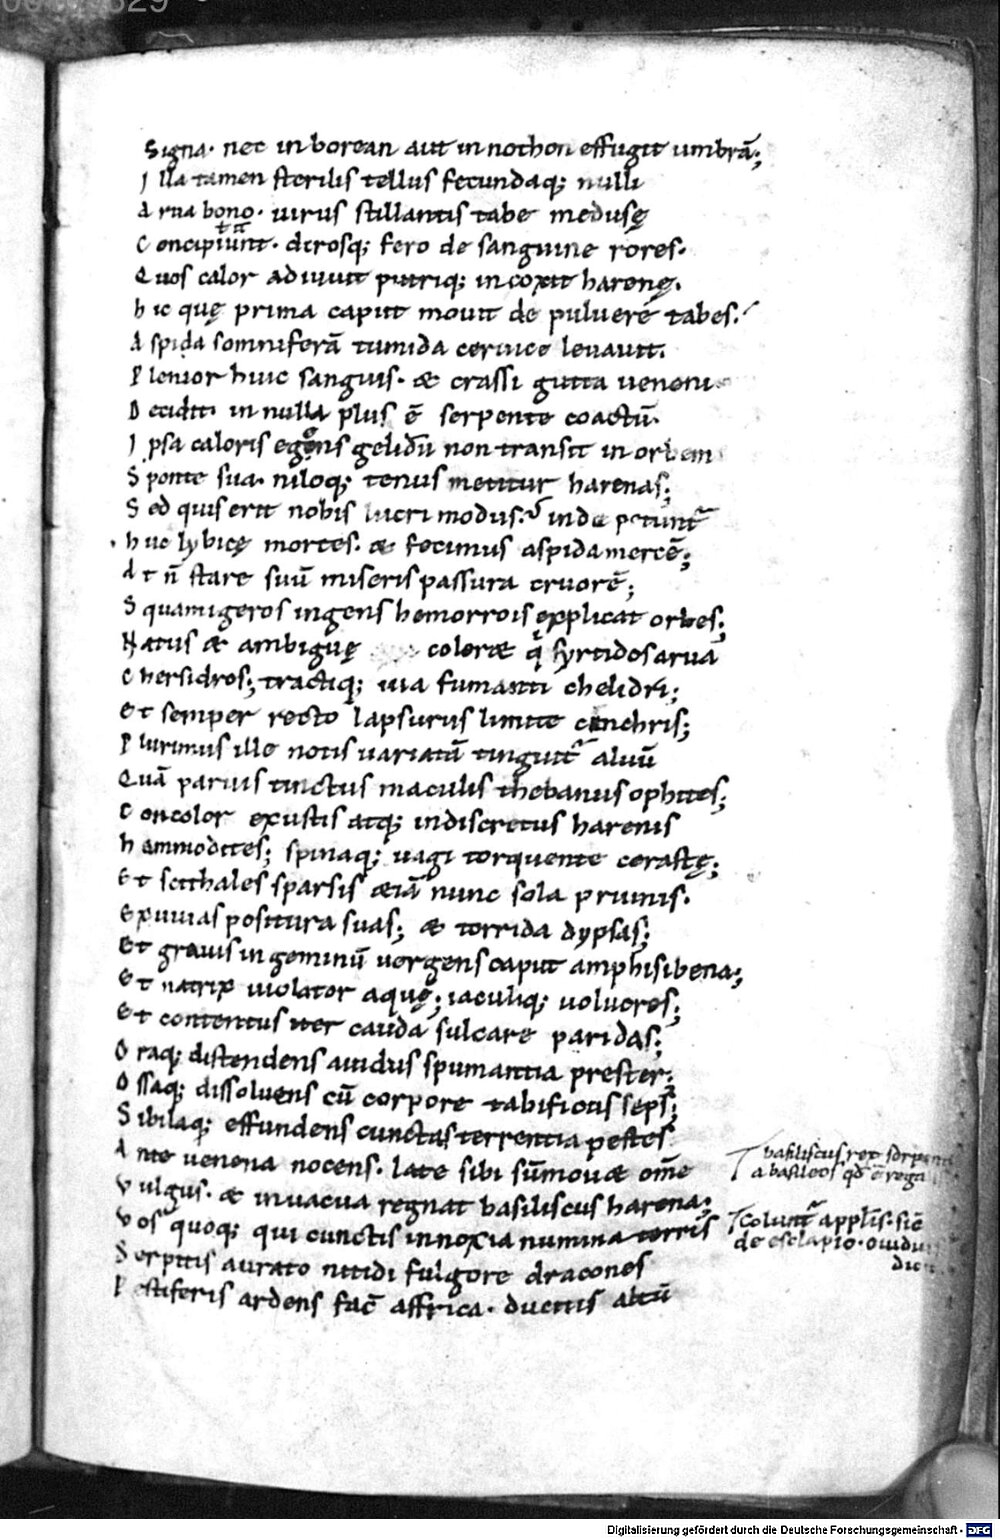 Signa· nec in borean aut in nothon effugit umbrā;
Illa tamen sterilis tellus fecundaq; nulli
Arua bono· uirus stillantis tabe medusę
Concipiunt· dirosq; fero de sanguine rores·
Quos calor adiuuit putriq; incoxit harenę.
hic quę prima caput mouit de puluere tabes·
Aspida somniferā tumida ceruice leuauit.
Plenior huic sanguis· & crassi gutta ueneni
Decidit· in nulla plus ē serpente coactū·
Ipsa caloris egens gelidū non transit in orbem
Sponte sua· niloq; tenus metitur harenas;
Sed quis erit nobis lucri modus· inde petunt̄
huc lybicę mortes· & fecimus aspida mercē;
At n̄ stare suū miseris passura cruorē;
Squamigeros ingens hemorrois explicat orbes;
Natus & ambiguę coler& q̄ syrtidos arua
Chersidros; tractiq; uia fumanti chelidri;
Et semper recto lapsurus limite cenchris;
Plurimus ille notis uariatā tinguit̄ aluū
Quā paruis tinctus maculis thebanus ophites;
Concolor exustis atq; indiscretus harenis
hammodites; spinaq; uagi torquente cerastę;
Et scithales sparsis &iā nunc sola pruinis·
Exuuias positura suas; & torrida dypsas;
Et grauis in geminū uergens caput amphisibena;
Et natrix uiolator aquę; iaculiq; uolucres;
Et contentus iter cauda sulcare paridas;
Oraq; distendens auidus spumantia prester;
Ossaq; dissoluens cū corpore tabificus seps;
Sibilaq; effundens cunctas terrentia pestes
Ante uenena nocens· late sibi sūmou& om̄e
Uulgus· & in uacua regnat basiliscus harena;
Uos quoq; qui cunctis innoxia numina terris
Serpitis aurato nitidi fulgore dracones
Pestiferis ardens fac̄ affrica· ducitis altū
basiliscus rex serpen
a basileos qd̄ ē rega
Colunt̄ app̄lis· sic
de esclapio· ouidius